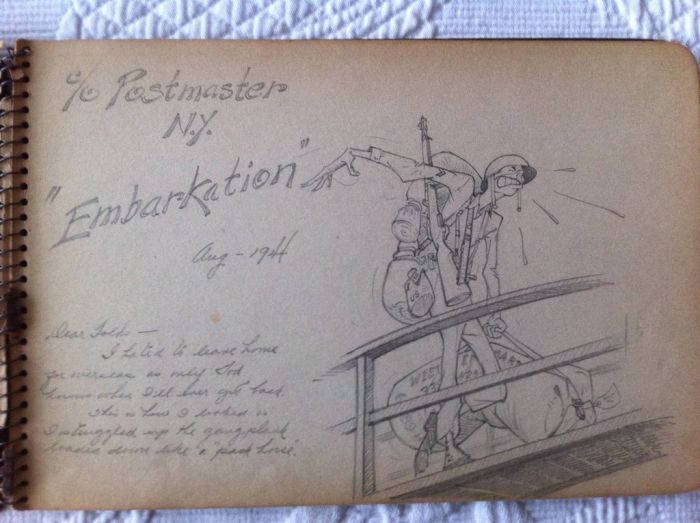 c/o Postmaster
N.Y.
"Embarkation"
Aug - 1944
Dear Folks —
I hated to leave home
for overseas as only God
knows when I'll ever get back.
This is how I looked as
I struggled up the gangplank
loaded down like a "pack horse".
US
WEST